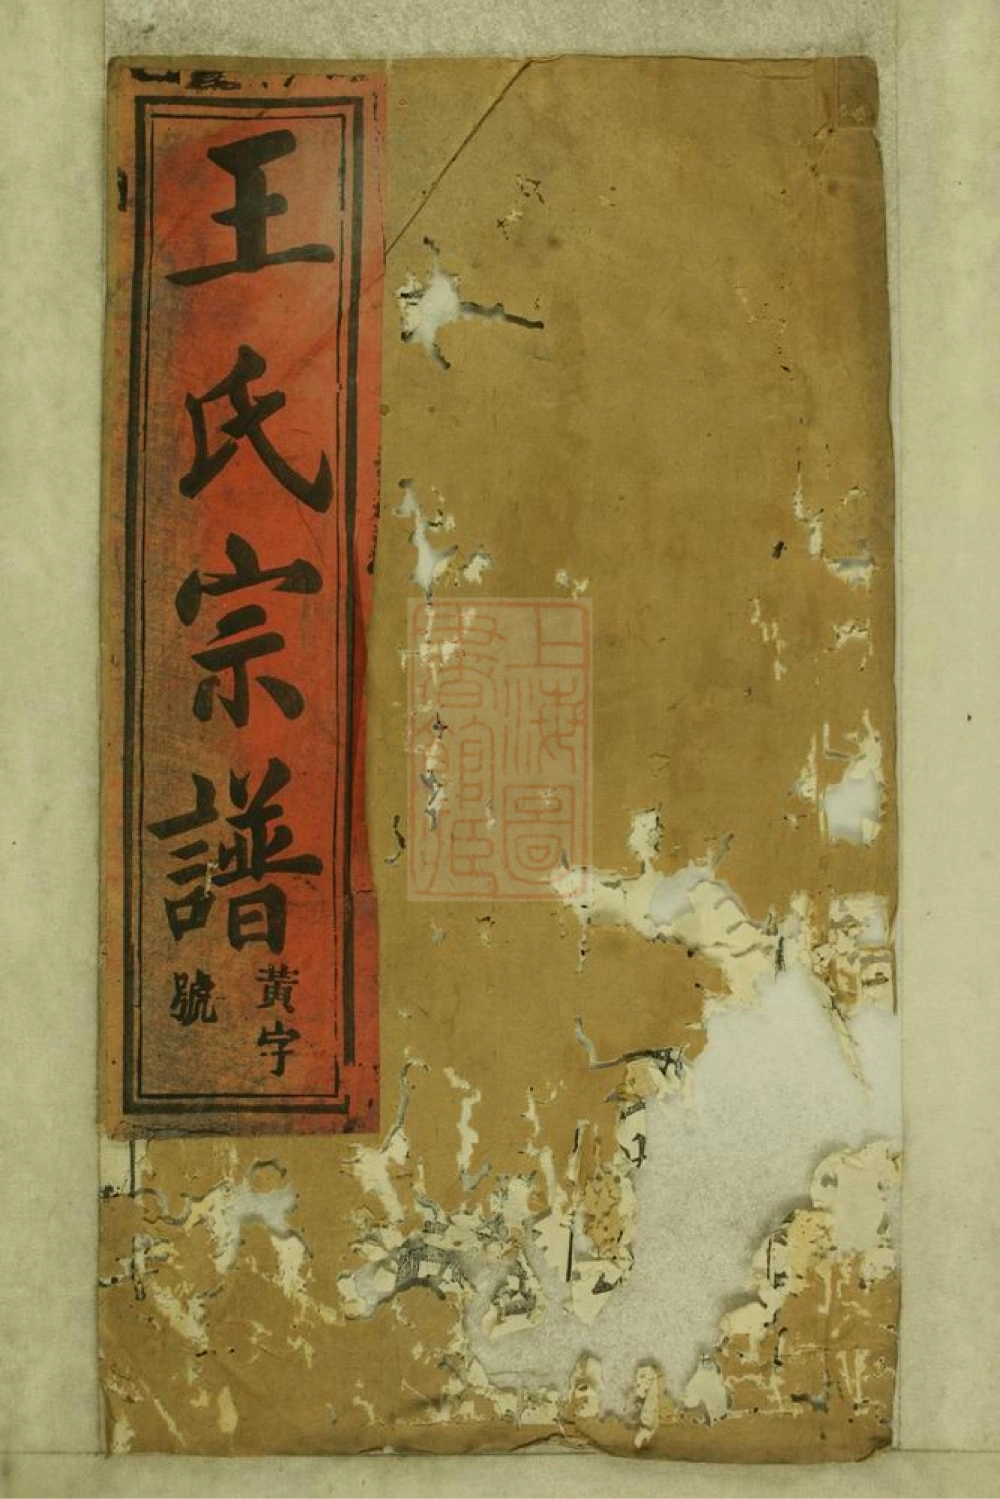 王氏宗譜
黃字
號
上海圖
書館藏